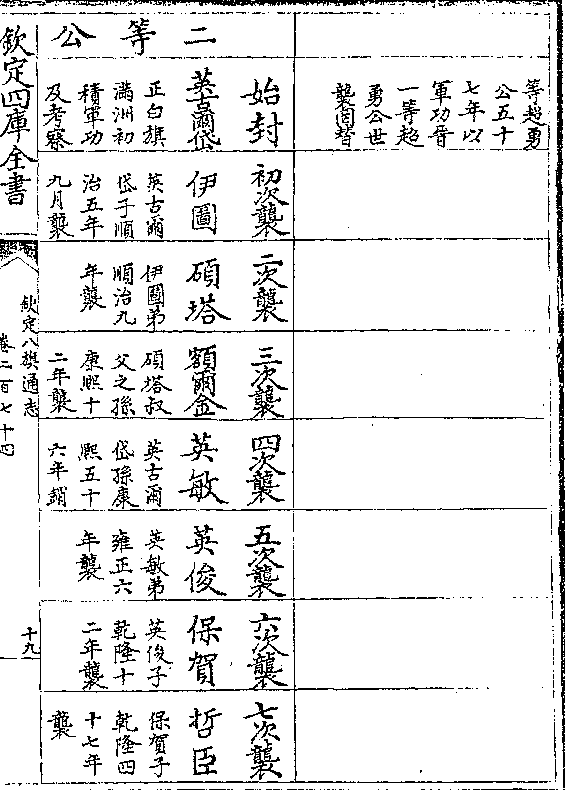 等超勇
公五十
七年以
軍功晉
一等超
勇公世
襲罔替
始封
初次襲
二次襲
三次襲
四次襲
五次襲
六次襲
七次襲
二等公
英古爾岱
正白旗
滿洲初
積軍功
及考察
伊圖
英古爾
岱子順
治五年
九月襲
碩塔
伊圖弟
順治九
年襲
額爾金
碩塔叔
父之孫
康熙十
二年襲
英敏
英古爾
岱孫康
熙五十
六年銷
英俊
英敏弟
雍正六
年襲
保賀
英俊子
乾隆十
二年襲
哲臣
保賀子
乾隆四
十七年
襲
欽定四庫全書
欽定八旗通志
卷二百七十四
十九